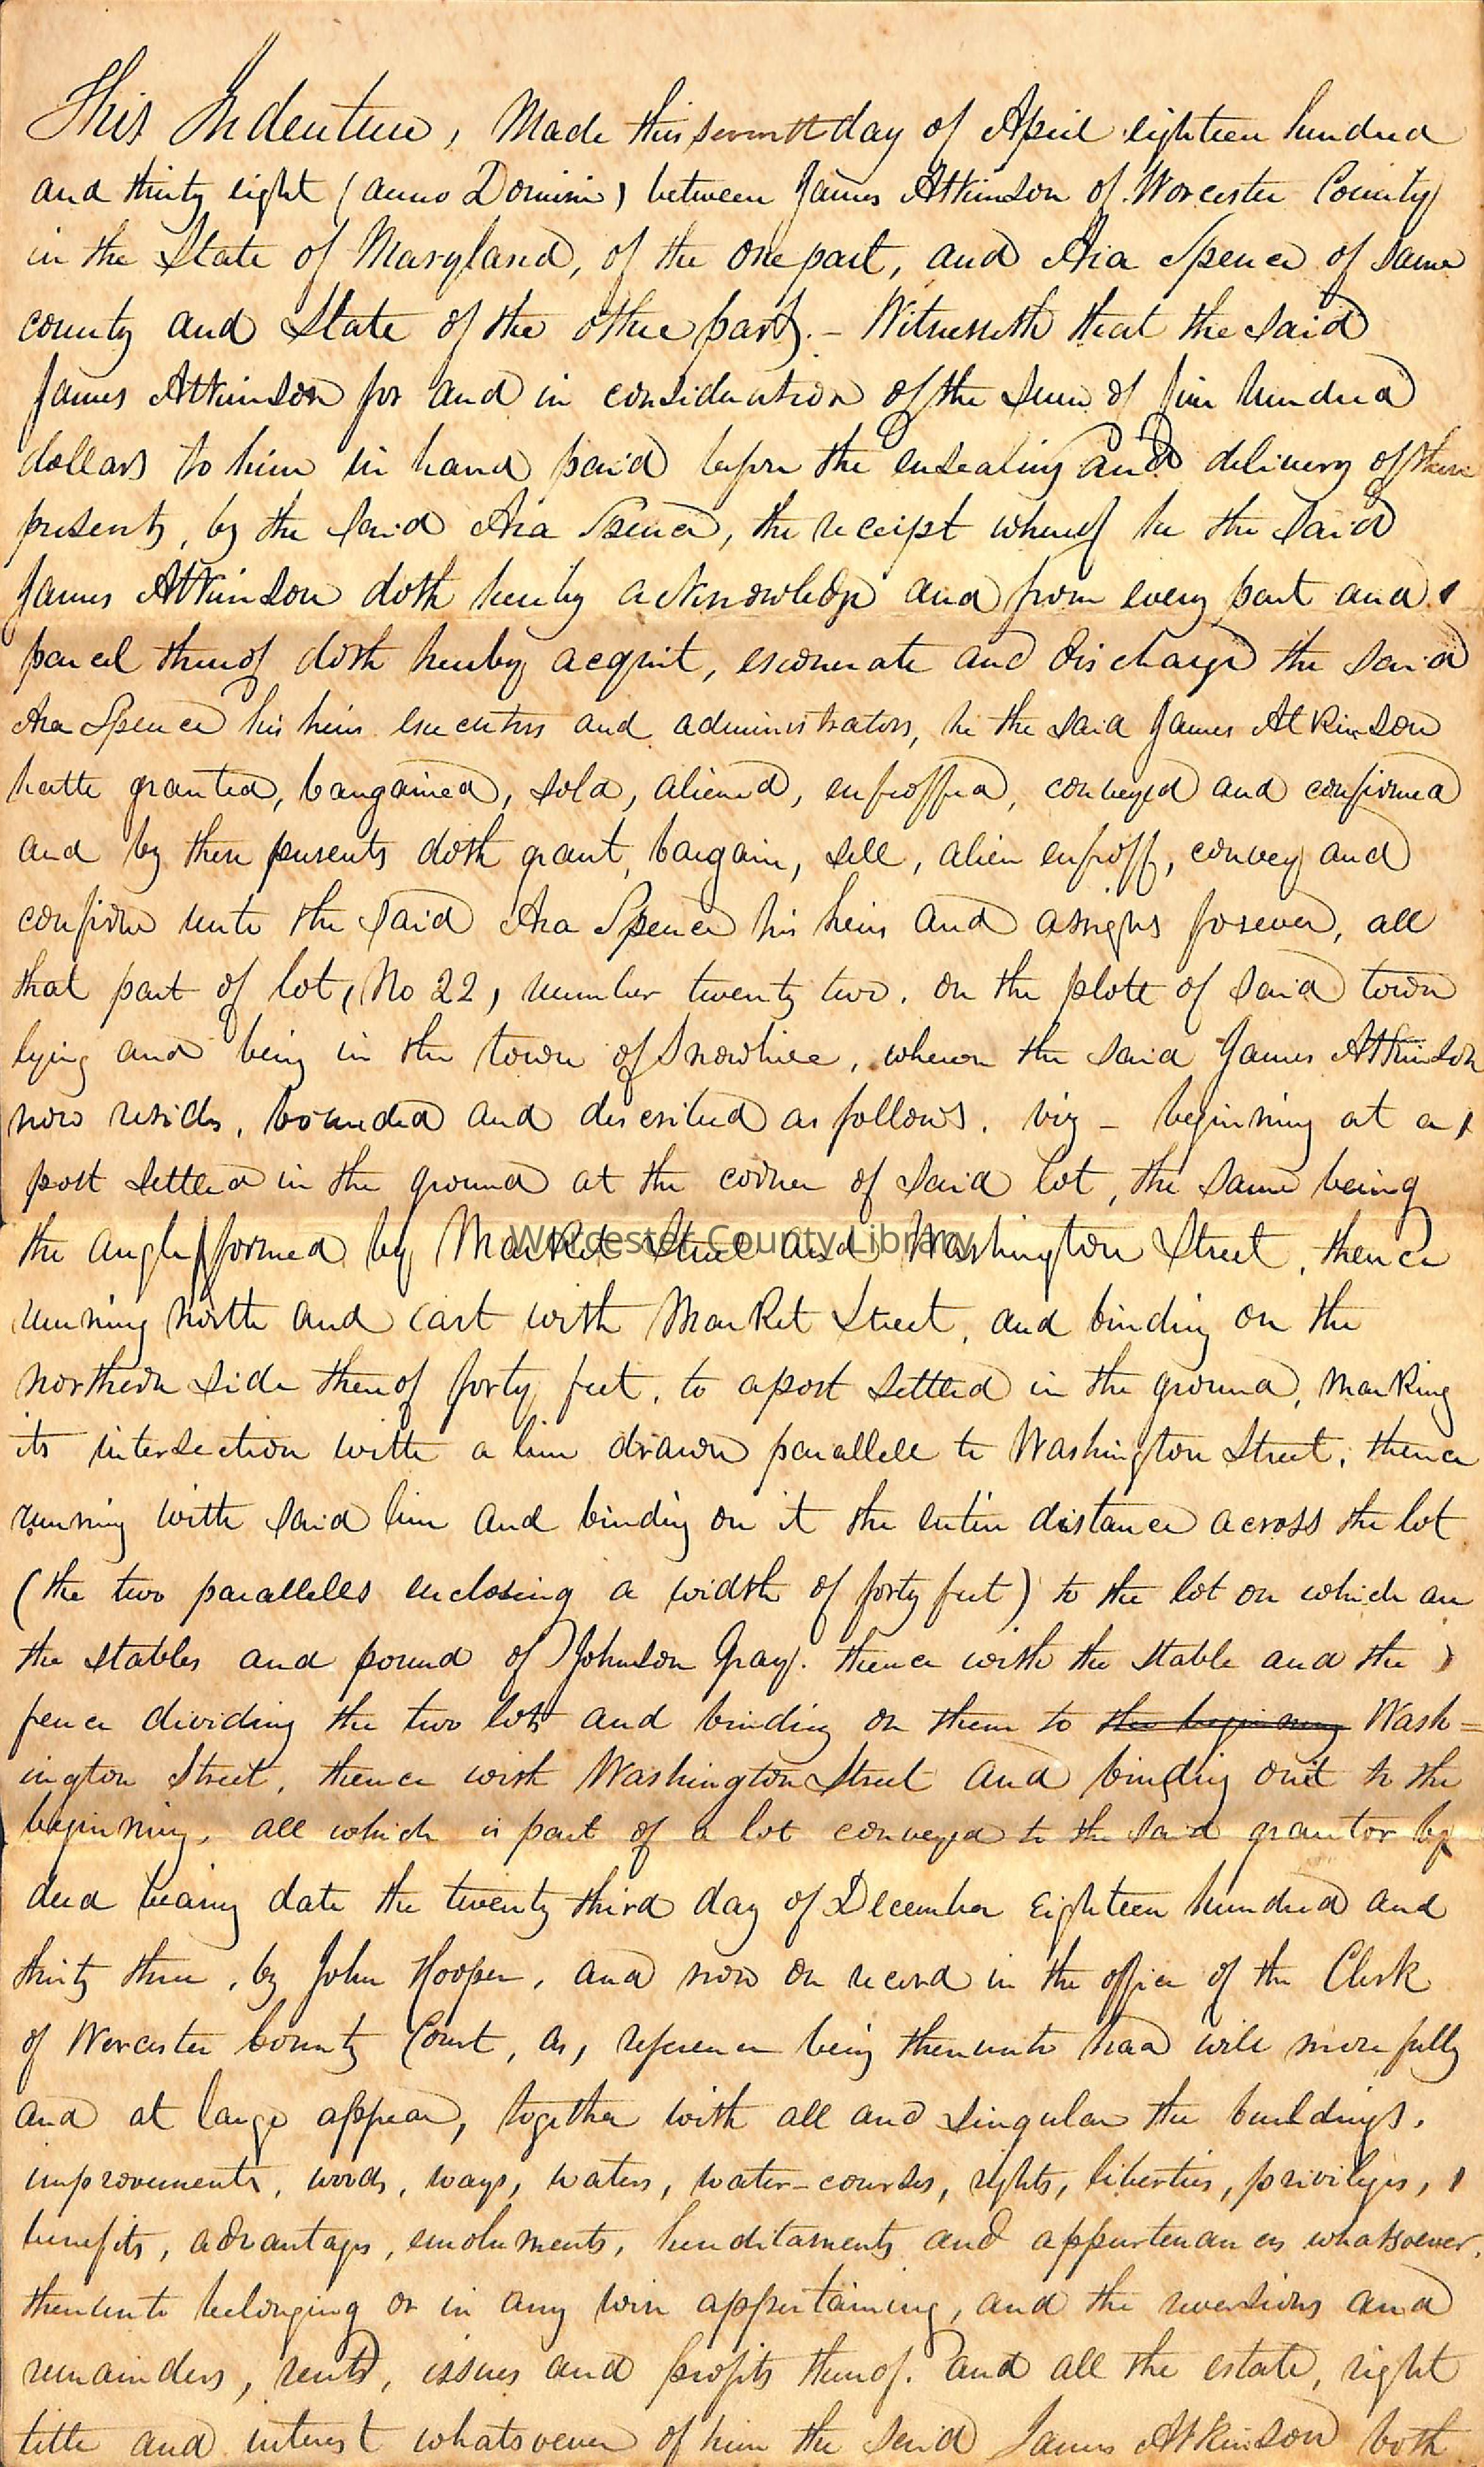 This Indenture, Made this seventh day of April eighteen hundred
and thirty eight (anno Domini) between James Atkinson of Worcester County
in the State of Maryland, of the one part, and Ara Spence of same
county and State of the other part. - Witnesseth that the said
James Atkinson for and in consideration of the sum of five hundred
dollars to him in hand paid before the ensealing and delivery of these
presents, by the said Ara Spence, the receipt whereof he the said
James Atkinson doth hereby acknowledge and from every part and
parcel thereof doth hereby acquit, exonerate and discharge the said
Ara Spence his heirs executors and administrators, he the said James Atkinson
hath granted, bargained, sold, aliened, enfeoffed, conveyed and confirmed
and by these presents doth grant, bargain, sell, alien enfeoff, convey and
confirm unto the said Ara Spence his heirs and assigns forever, all
that part of lot, (No 22, number twenty two, on the plote of said town
lying and being in the town of Snowhill, whereon the said James Atkinson
now resides, bounded and described as follows. viz - beginning at a
post settled in the ground at the corner of said lot, the same being
the angle formed by Market Street and Washington Street, thence
Worcester County Library
running north and east with Market Street, and binding on the
northern side thereof forty feet, to a post settled in the ground, marking
its intersection with a line drawn parallell to Washington Street, thence
running with said line and binding on it the entire distance across the lot
(the two paralells enclosing a width of forty feet) to the lot on which are
the stables and pound of Johnson Gray. thence with the stable and the
fence dividing the two lots and binding on them to the beginning Wash=
ington Street, thence with Washington Street and binding on it to the
beginning, all which is part of a lot conveyed to the said grantor by
deed bearing date the twenty third day of December Eighteen hundred and
thirty three, by John Hooper, and now on record in the office of the Clerk
of Worcester County Court, as, reference being thereunto had will more fully
and at large appear, together with all and singular the buildings,
improvements, woods, ways, waters, water-courses, rights, liberties, privileges,
benefits, advantages, emoluments, hereditaments and appurtenances whatsoever,
thereunto belonging or in any wise appertaining, and the reversions and
remainders, rents, issues and profits thereof. and all the estate, right
title and interest whatsoever of him the said James Atkinson both